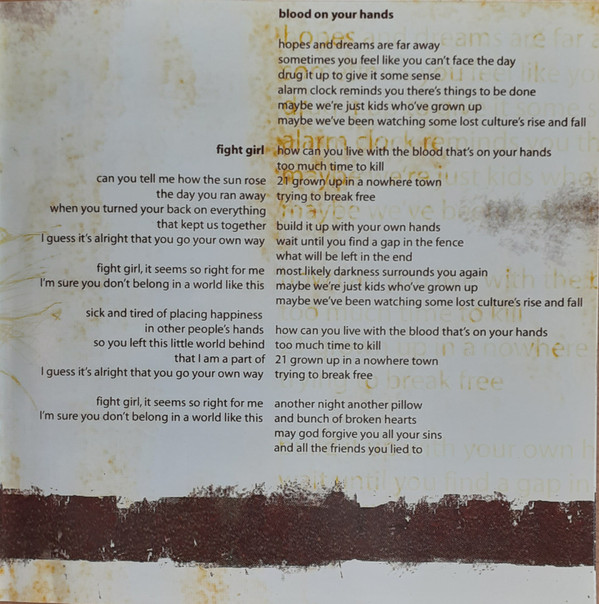 blood on your hands
hopes and dreams are far away
sometimes you feel like you can't face the day
drug it up to give it some sense
alarm clock reminds you there's things to be done
maybe we're just kids who've grown up
maybe we've been watching some lost culture's rise and fall
how can you live with the blood that's on your hands
too much time to kill
21 grown up in a nowhere town
trying to break free
build it up with your own hands
wait until you find a gap in the fence
what will be left in the end
most likely darkness surrounds you again
maybe we're just kids who've grown up
maybe we've been watching some lost culture's rise and fall
how can you live with the blood that's on your hands
too much time to kill
21 grown up in a nowhere town
trying to break free
another night another pillow
and bunch of broken hearts
may god forgive you all your sins
and all the friends you lied to
fight girl
can you tell me how the sun rose
the day you ran away
when you turned your back on everything
that kept us together
I guess it's alright that you go your own way
fight girl, it seems so right for me
I'm sure you don't belong in a world like this
sick and tired of placing happiness
in other people's hands
so you left this little world behind
that I am a part of
I guess it's alright that you go your own way
fight girl, it seems so right for me
I'm sure you don't belong in a world like this